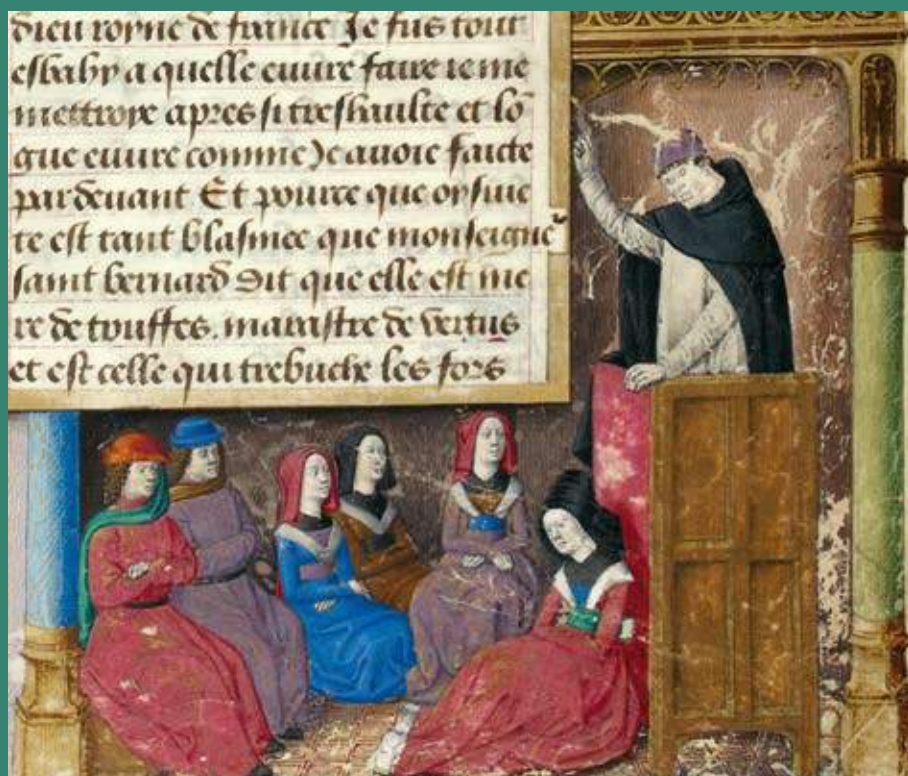 dieu royne de france Je fus tout
esbahy a quelle euure faire ie me
mettroye apres si treshaulte et lō
gue euure comme Je auoie faicte
par deuant Et pource que oysiue
te est tant blasmee que monseigne᷑
saint bernard dit que elle est me
re de touffes. marastre de vertus
et est celle qui trebuche les fors